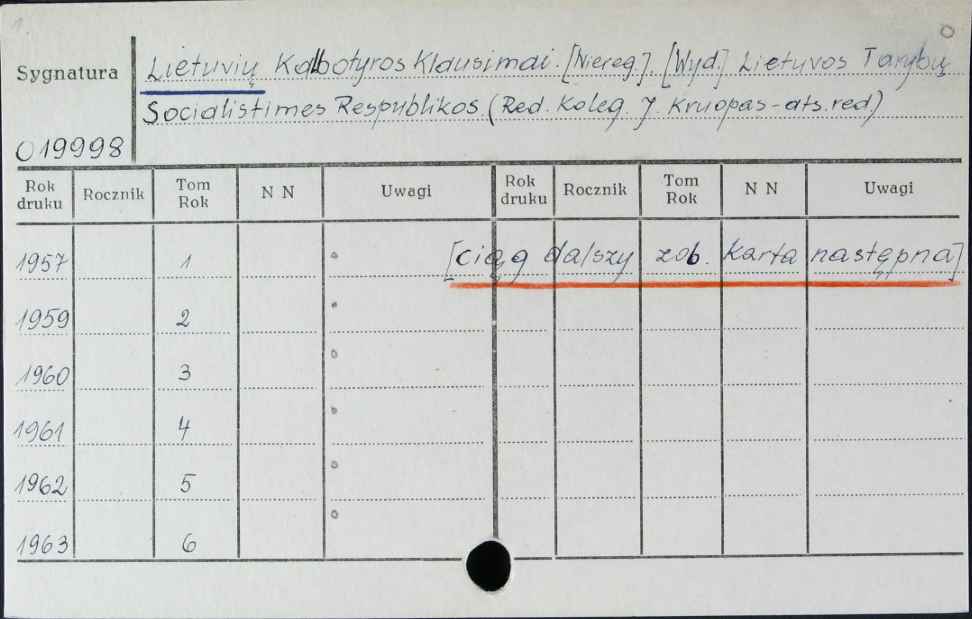 1
Lietuvių Kalbotyros Klausimai. [Niereg]. [Wyd] Lietuvos Tarybų
Sygnatura
Socialistimes Respublikos. (Red. Koleg. J. Kruopas-ats.red)
019998
Rok druku Rocznik Tom Rok N N Uwagi Rok druku Rocznik Tom Rok N N Uwagi
1957 1 [ciąg dalszy zob. karta następna]
1959 2
1960 3
1961 4
1962 5
1963 6